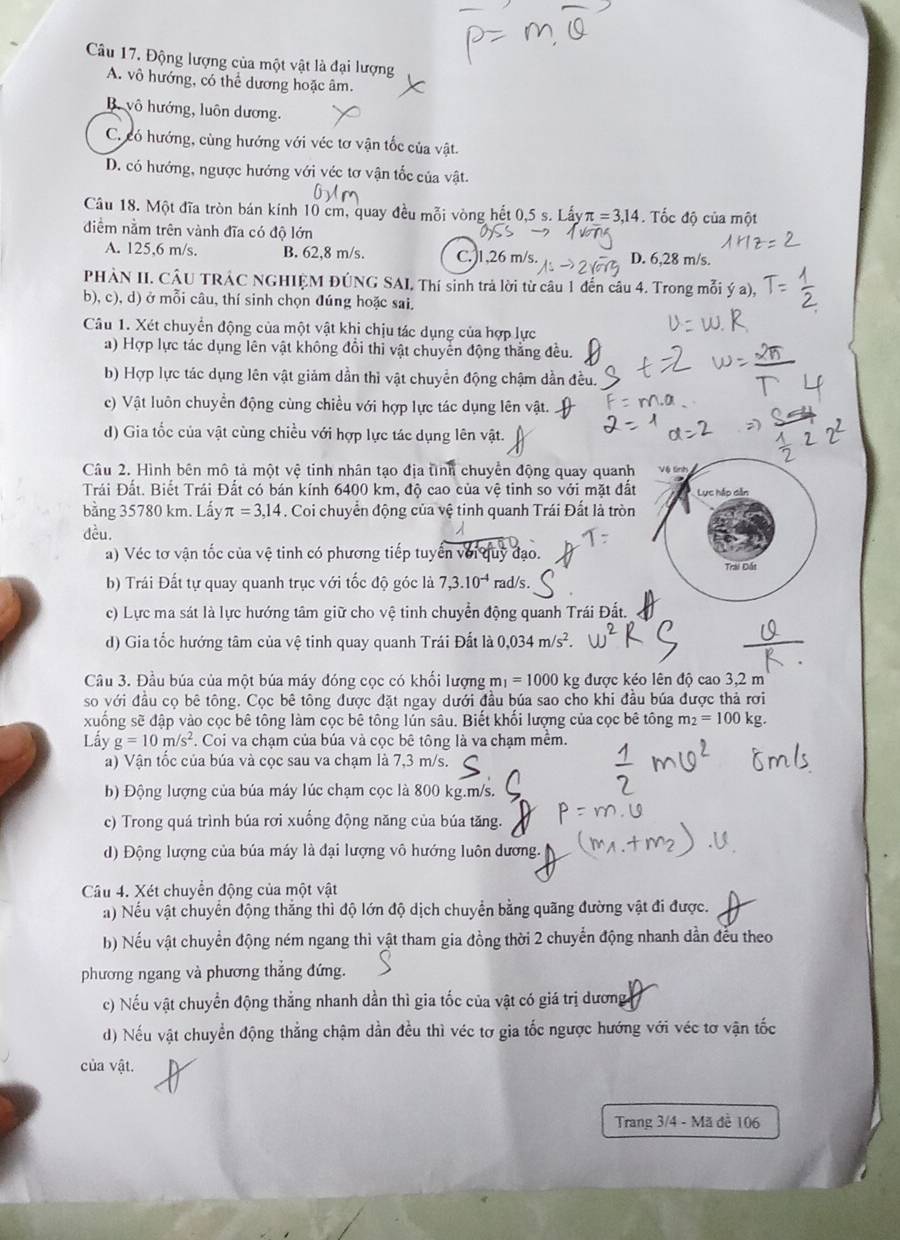 p = m.v
Câu 17. Động lượng của một vật là đại lượng
A. vô hướng, có thể dương hoặc âm.
B. vô hướng, luôn dương.
C. có hướng, cùng hướng với véc tơ vận tốc của vật.
D. có hướng, ngược hướng với véc tơ vận tốc của vật.
0,1m
Câu 18. Một đĩa tròn bán kính 10 cm, quay đều mỗi vòng hết 0,5 s. Lấy π = 3,14. Tốc độ của một
điểm nằm trên vành đĩa có độ lớn
0,5s → 1 vòng
1Hz = 2
A. 125,6 m/s. B. 62,8 m/s. C. 1,26 m/s. D. 6,28 m/s.
1s → 2 vòng
PHẦN II. CÂU TRẮC NGHIỆM ĐÚNG SAI. Thí sinh trả lời từ câu 1 đến câu 4. Trong mỗi ý a),
T = 1/2
b), c), d) ở mỗi câu, thí sinh chọn đúng hoặc sai.
Câu 1. Xét chuyển động của một vật khi chịu tác dụng của hợp lực
v = w.R
a) Hợp lực tác dụng lên vật không đổi thì vật chuyển động thẳng đều. Đ
b) Hợp lực tác dụng lên vật giảm dần thì vật chuyển động chậm dần đều. S
t = 2 w = 2π/T 4
c) Vật luôn chuyển động cùng chiều với hợp lực tác dụng lên vật. Đ
F = m.a
d) Gia tốc của vật cùng chiều với hợp lực tác dụng lên vật. Đ
2 = 1 a = 2 ⇒ 1/2 2 2²
Câu 2. Hình bên mô tả một vệ tinh nhân tạo địa tĩnh chuyển động quay quanh
Trái Đất. Biết Trái Đất có bán kính 6400 km, độ cao của vệ tinh so với mặt đất
bằng 35780 km. Lấy π = 3,14. Coi chuyển động của vệ tinh quanh Trái Đất là tròn
đều.
Vệ tinh
Lực hấp dẫn
Trái Đất
a) Véc tơ vận tốc của vệ tinh có phương tiếp tuyến với quỹ đạo. Đ T =
b) Trái Đất tự quay quanh trục với tốc độ góc là 7,3.10⁻⁴ rad/s. S
c) Lực ma sát là lực hướng tâm giữ cho vệ tinh chuyển động quanh Trái Đất. Đ
d) Gia tốc hướng tâm của vệ tinh quay quanh Trái Đất là 0,034 m/s². w²R S v/R.
Câu 3. Đầu búa của một búa máy đóng cọc có khối lượng m₁ = 1000 kg được kéo lên độ cao 3,2 m
so với đầu cọ bê tông. Cọc bê tông được đặt ngay dưới đầu búa sao cho khi đầu búa được thả rơi
xuống sẽ đập vào cọc bê tông làm cọc bê tông lún sâu. Biết khối lượng của cọc bê tông m₂ = 100 kg.
Lấy g = 10 m/s². Coi va chạm của búa và cọc bê tông là va chạm mềm.
a) Vận tốc của búa và cọc sau va chạm là 7,3 m/s. S
1/2 mv² 8m/s
b) Động lượng của búa máy lúc chạm cọc là 800 kg.m/s. S
c) Trong quá trình búa rơi xuống động năng của búa tăng. Đ
p = m.v
d) Động lượng của búa máy là đại lượng vô hướng luôn dương. Đ
(m₁.+m₂).v.
Câu 4. Xét chuyển động của một vật
a) Nếu vật chuyển động thẳng thì độ lớn độ dịch chuyển bằng quãng đường vật đi được. Đ
b) Nếu vật chuyển động ném ngang thì vật tham gia đồng thời 2 chuyển động nhanh dần đều theo
phương ngang và phương thẳng đứng. S
c) Nếu vật chuyển động thẳng nhanh dần thì gia tốc của vật có giá trị dương. Đ
d) Nếu vật chuyển động thẳng chậm dần đều thì véc tơ gia tốc ngược hướng với véc tơ vận tốc
của vật. Đ
Trang 3/4 - Mã đề 106